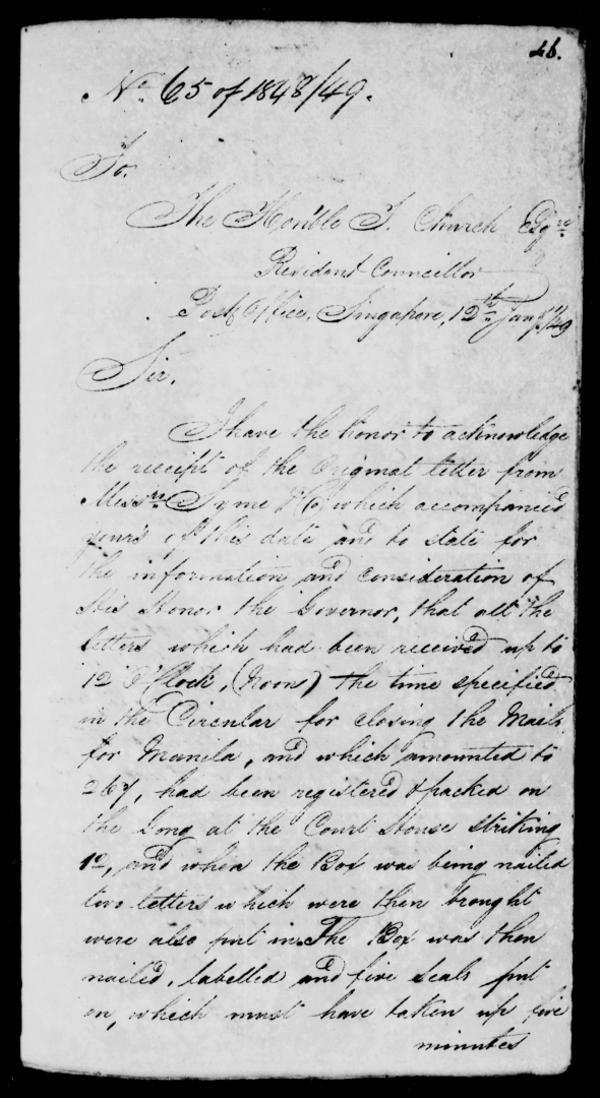 46.
No. 65 of 1848/49.
To.
The Honble T. Church Esqre
Resident Councillor
Post Office, Singapore, 12th Jany /49
Sir,
I have the honor to acknowledge
the receipt of the Original letter from
Messrs Syme & Co, which accompanied
yours of this date, and to state for
the information and consideration of
His Honor the Governor, that all the
letters which had been received up to
12 O'Clock, (Noon) the time specified
in the Circular for closing the Mails
for Manila, and which amounted to
267, had been registered & packed on
the Gong at the Court House striking
12, and when the Box was being nailed
two letters which were then brought
were also put in. The Box was then
nailed, labelled and five seals put
on, which must have taken up five
minutes